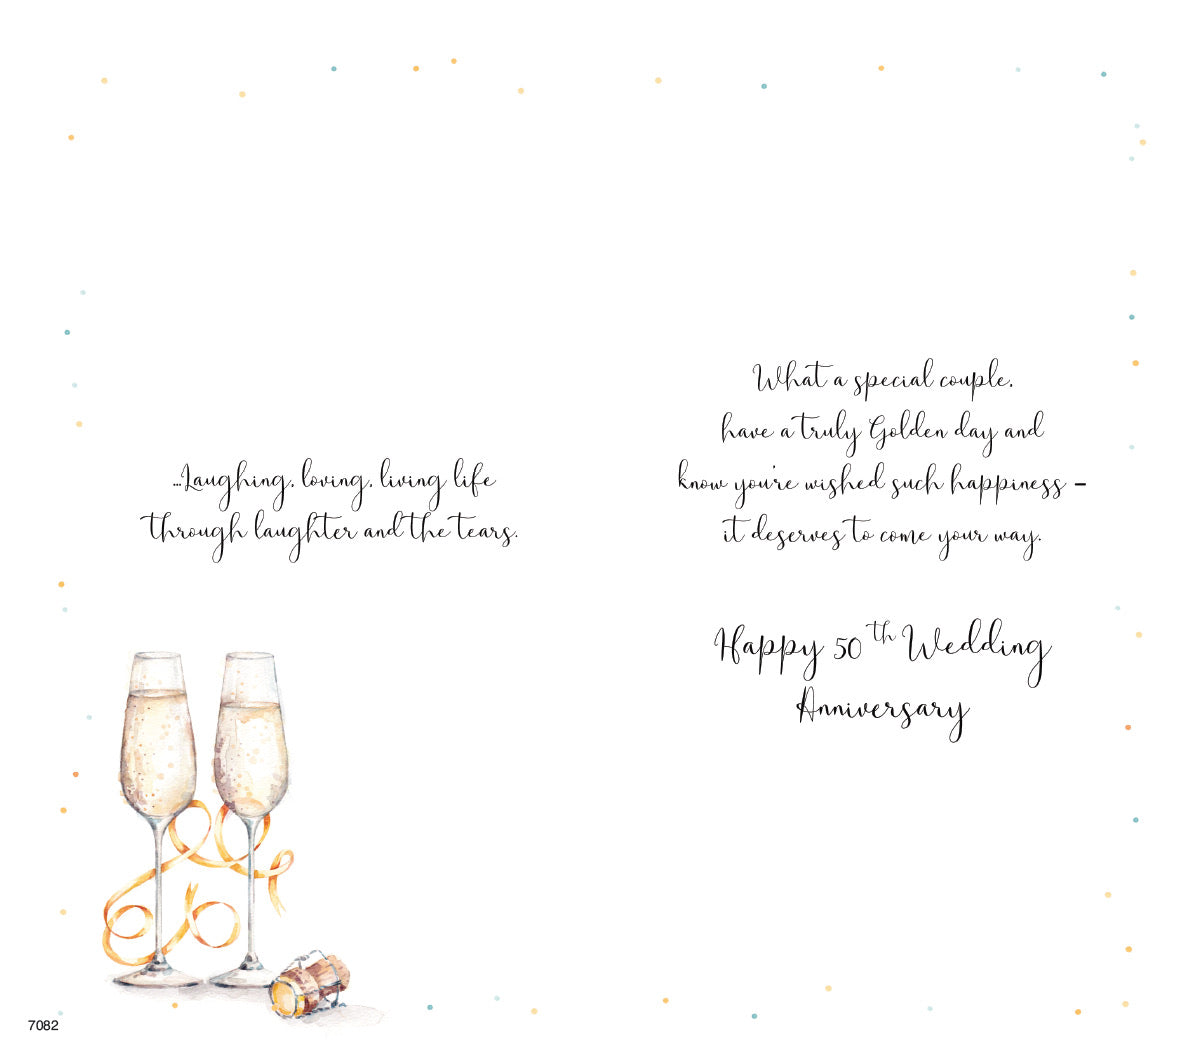 ...Laughing, loving, living life
through laughter and the tears.
What a special couple,
have a truly Golden day and
know you're wished such happiness –
it deserves to come your way.
Happy 50th Wedding
Anniversary
7082